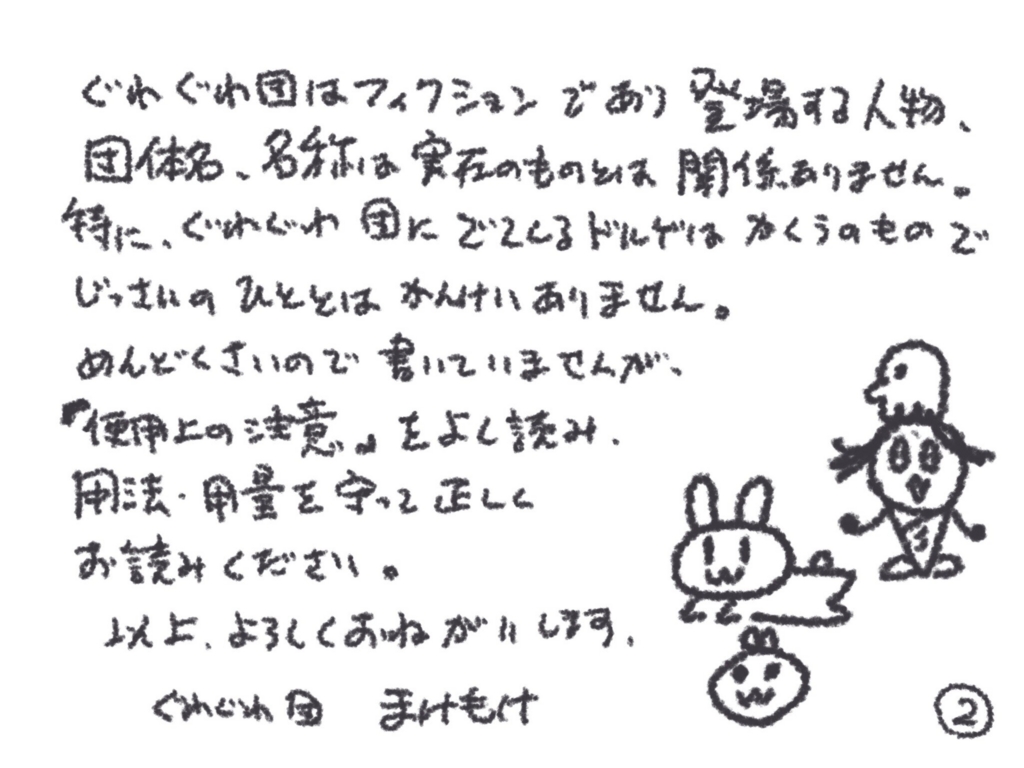 ぐわぐわ団はフィクションであり登場する人物、
団体名、名称は実在のものとは関係ありません。
特に、ぐわぐわ団にでてくるドルゲはかくうのもので
じっさいのひととはかんけいありません。
めんどくさいので書いていませんが、
『使用上の注意』をよく読み、
用法・用量を守って正しく
お読みください。
以上、よろしくおねがいします。
ぐわぐわ団 まけもけ
2